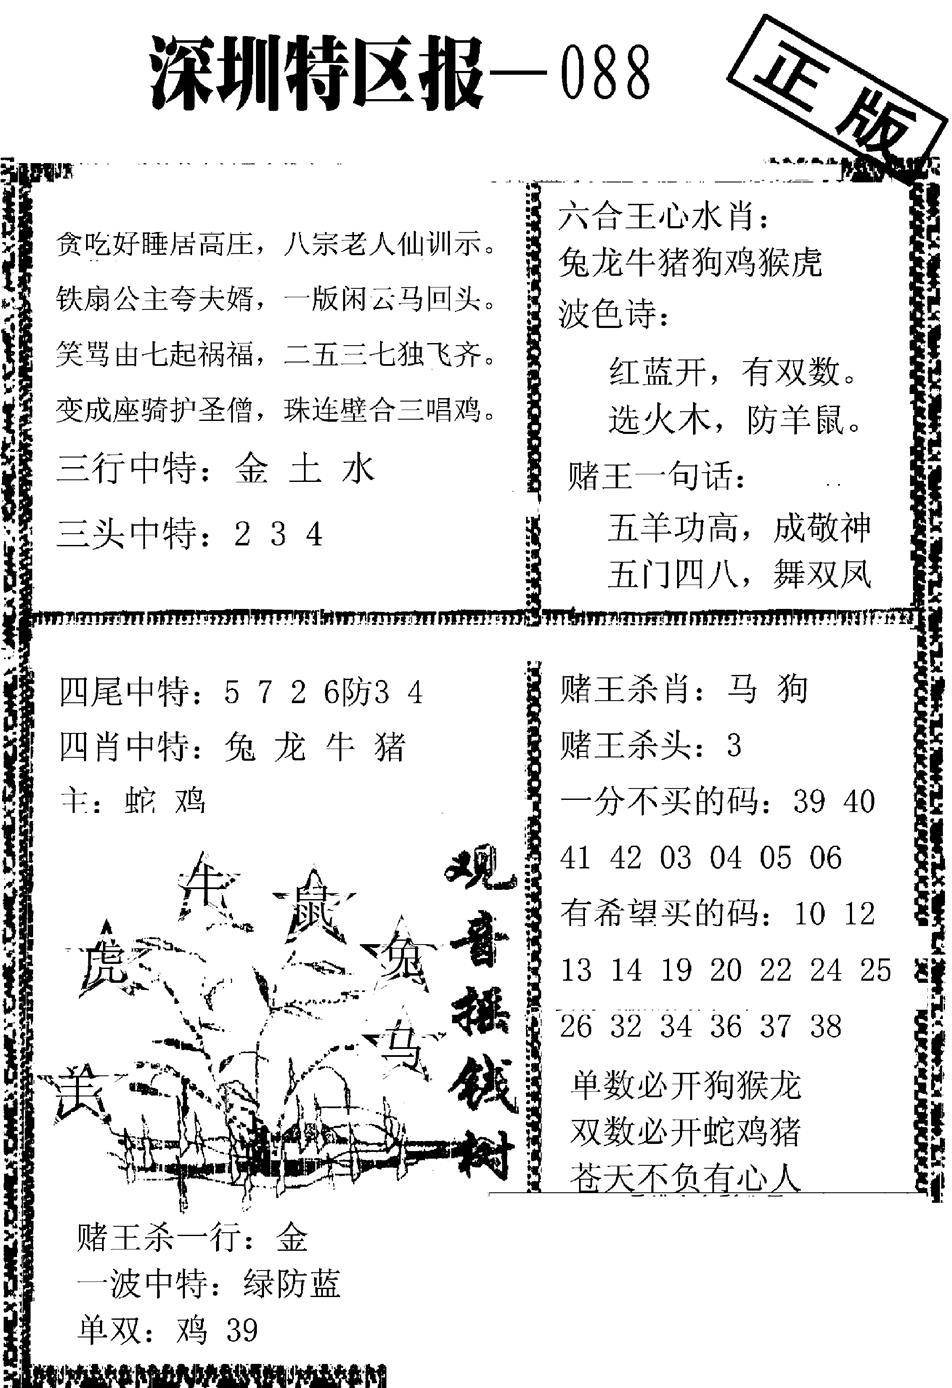 深圳特区报—088
正版
贪吃好睡居高庄，八宗老人仙训示。
铁扇公主夸夫婿，一版闲云马回头。
笑骂由七起祸福，二五三七独飞齐。
变成座骑护圣僧，珠连壁合三唱鸡。
三行中特：金 土 水
三头中特：2 3 4
六合王心水肖：
兔龙牛猪狗鸡猴虎
波色诗：
红蓝开，有双数。
选火木，防羊鼠。
赌王一句话：
五羊功高，成敬神
五门四八，舞双凤
四尾中特：5 7 2 6防3 4
四肖中特：兔 龙 牛 猪
主：蛇 鸡
牛
鼠
虎
兔
马
羊
观音摇钱树
赌王杀一行：金
一波中特：绿防蓝
单双：鸡 39
赌王杀肖：马 狗
赌王杀头：3
一分不买的码：39 40
41 42 03 04 05 06
有希望买的码：10 12
13 14 19 20 22 24 25
26 32 34 36 37 38
单数必开狗猴龙
双数必开蛇鸡猪
苍天不负有心人